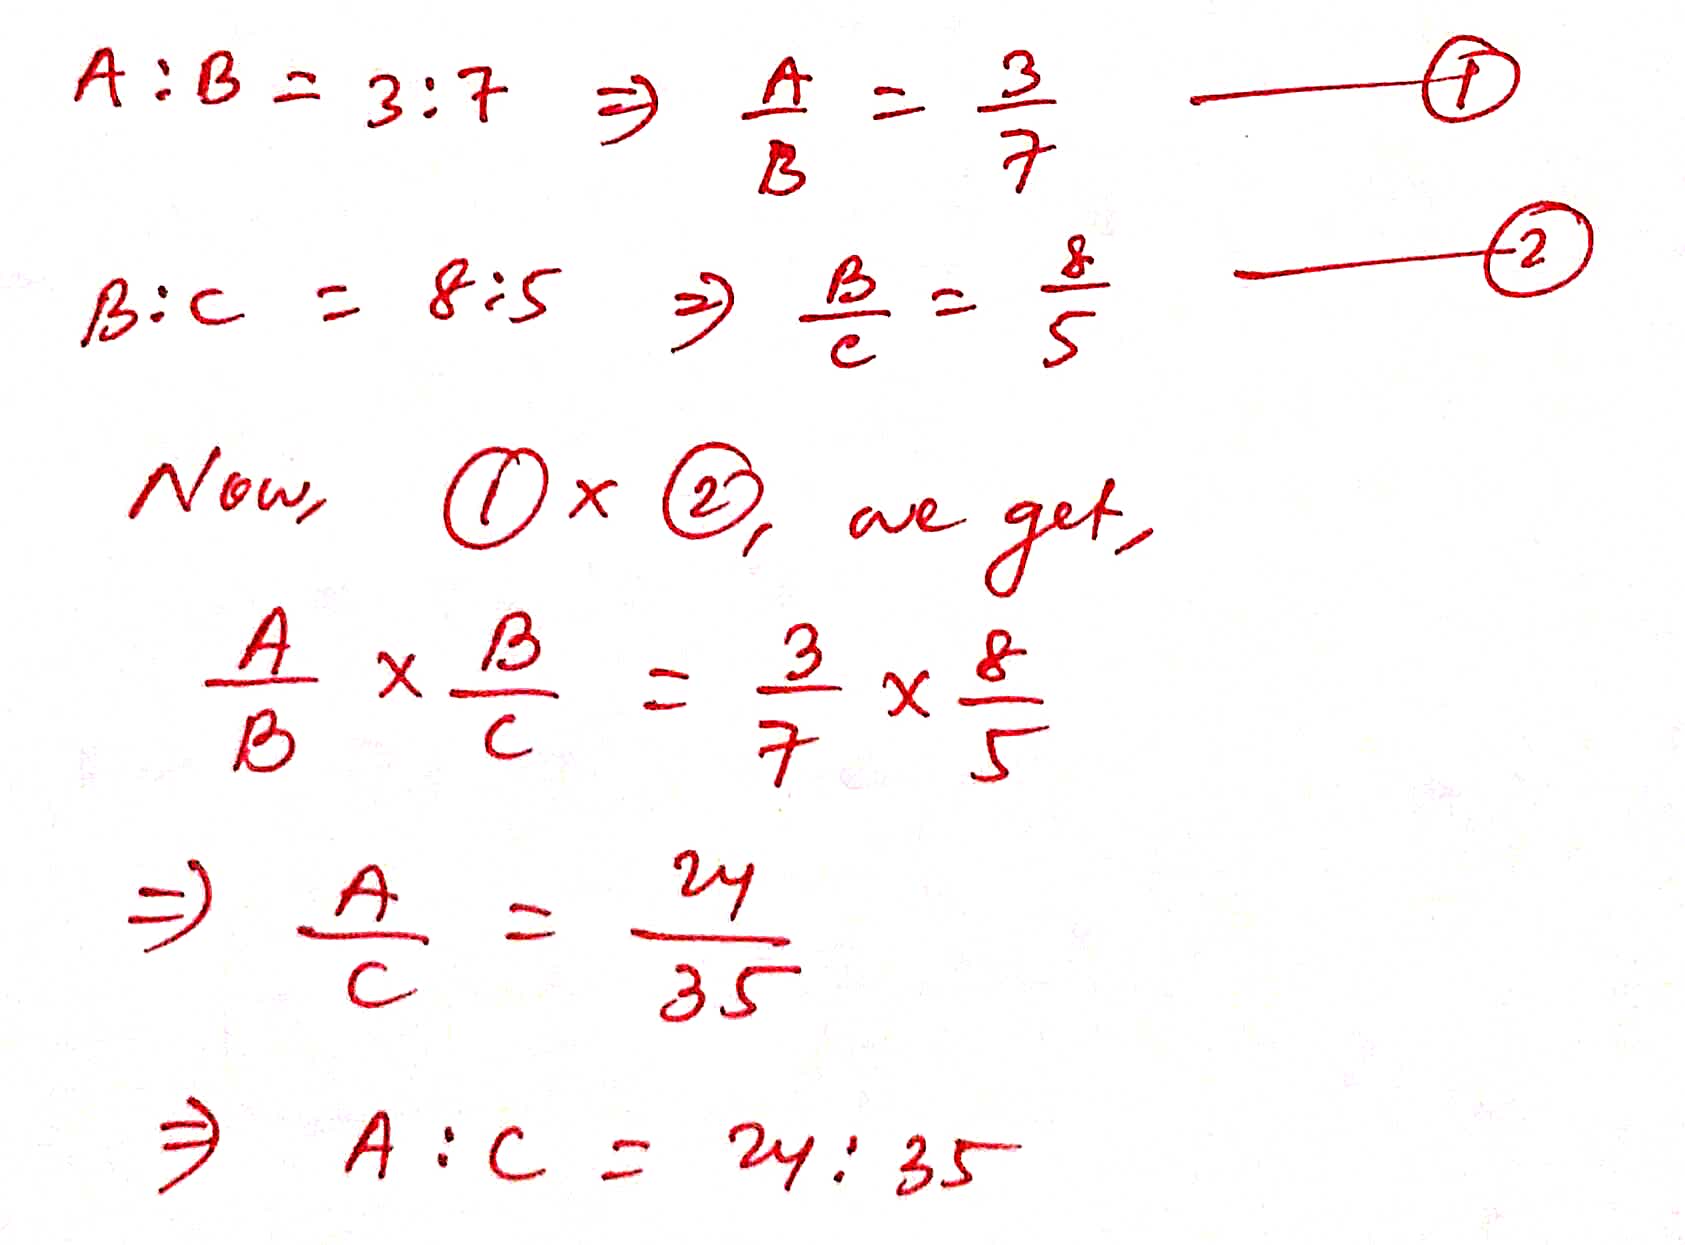 A : B = 3 : 7 ⇒ A/B = 3/7 —— ①
B : C = 8 : 5 ⇒ B/C = 8/5 —— ②
Now, ① × ②, we get,
A/B × B/C = 3/7 × 8/5
⇒ A/C = 24/35
⇒ A : C = 24 : 35